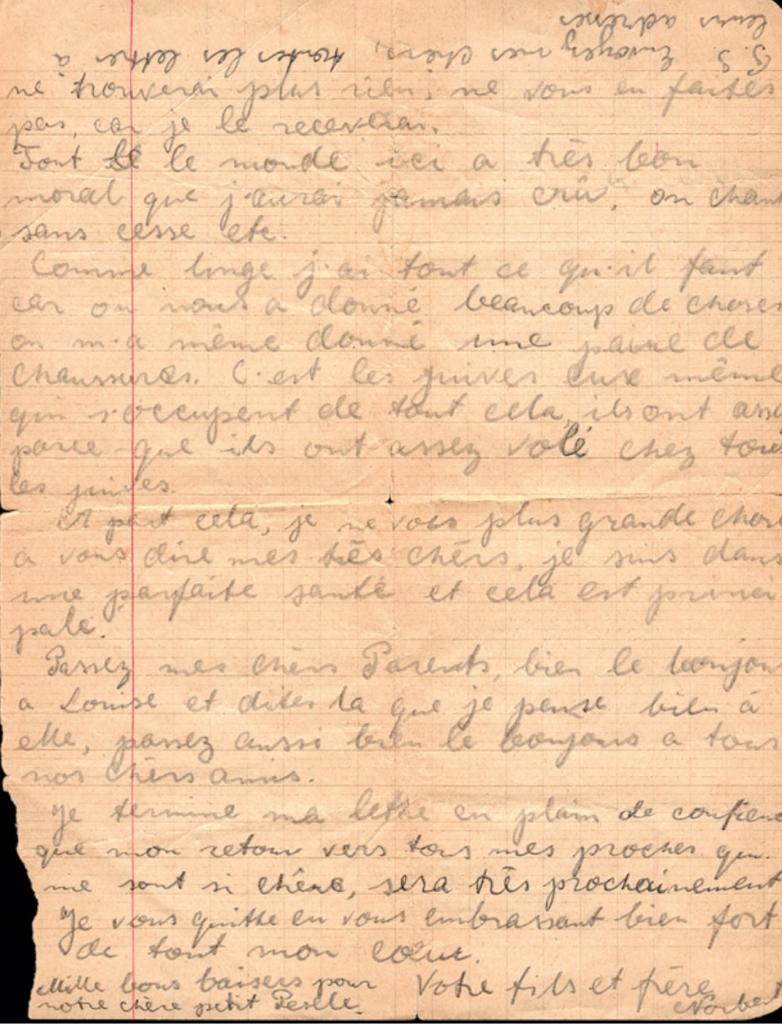 ne trouverai plus rien, ne vous en faites
pas, car je le recevrai.
Tout le monde ici a très bon
moral que j'aurai jamais crû, on chant
sans cesse etc.
Comme linge j'ai tout ce qu'il faut
car on nous a donné beaucoup de choses
on m'a même donné une paire de
chaussures. C'est les juives eux même
qui s'occupent de tout cela, ils ont ass
parce que ils ont assez volé chez tous
les juives.
A part cela, je ne vois plus grande chose
a vous dire mes très chèrs, je suis dans
une parfaite santé et cela est princi
pale.
Passez mes chèrs Parents, bien le bonjou
a Louise et dites la que je pense bien à
elle, passez aussi bien le bonjour a tous
nos chèrs amis.
Je termine ma lettre en plain de confienc
que mon retour vers tous mes proches qui
me sont si chèrs, sera très prochainement
Je vous quitte en vous embrassant bien fort
de tout mon cœur.
Mille bons baisers pour
notre chère petit
Votre fils et frère
Norbert
P.S. Envoyez mes chèrs, toutes les lettre a
leurs adresses